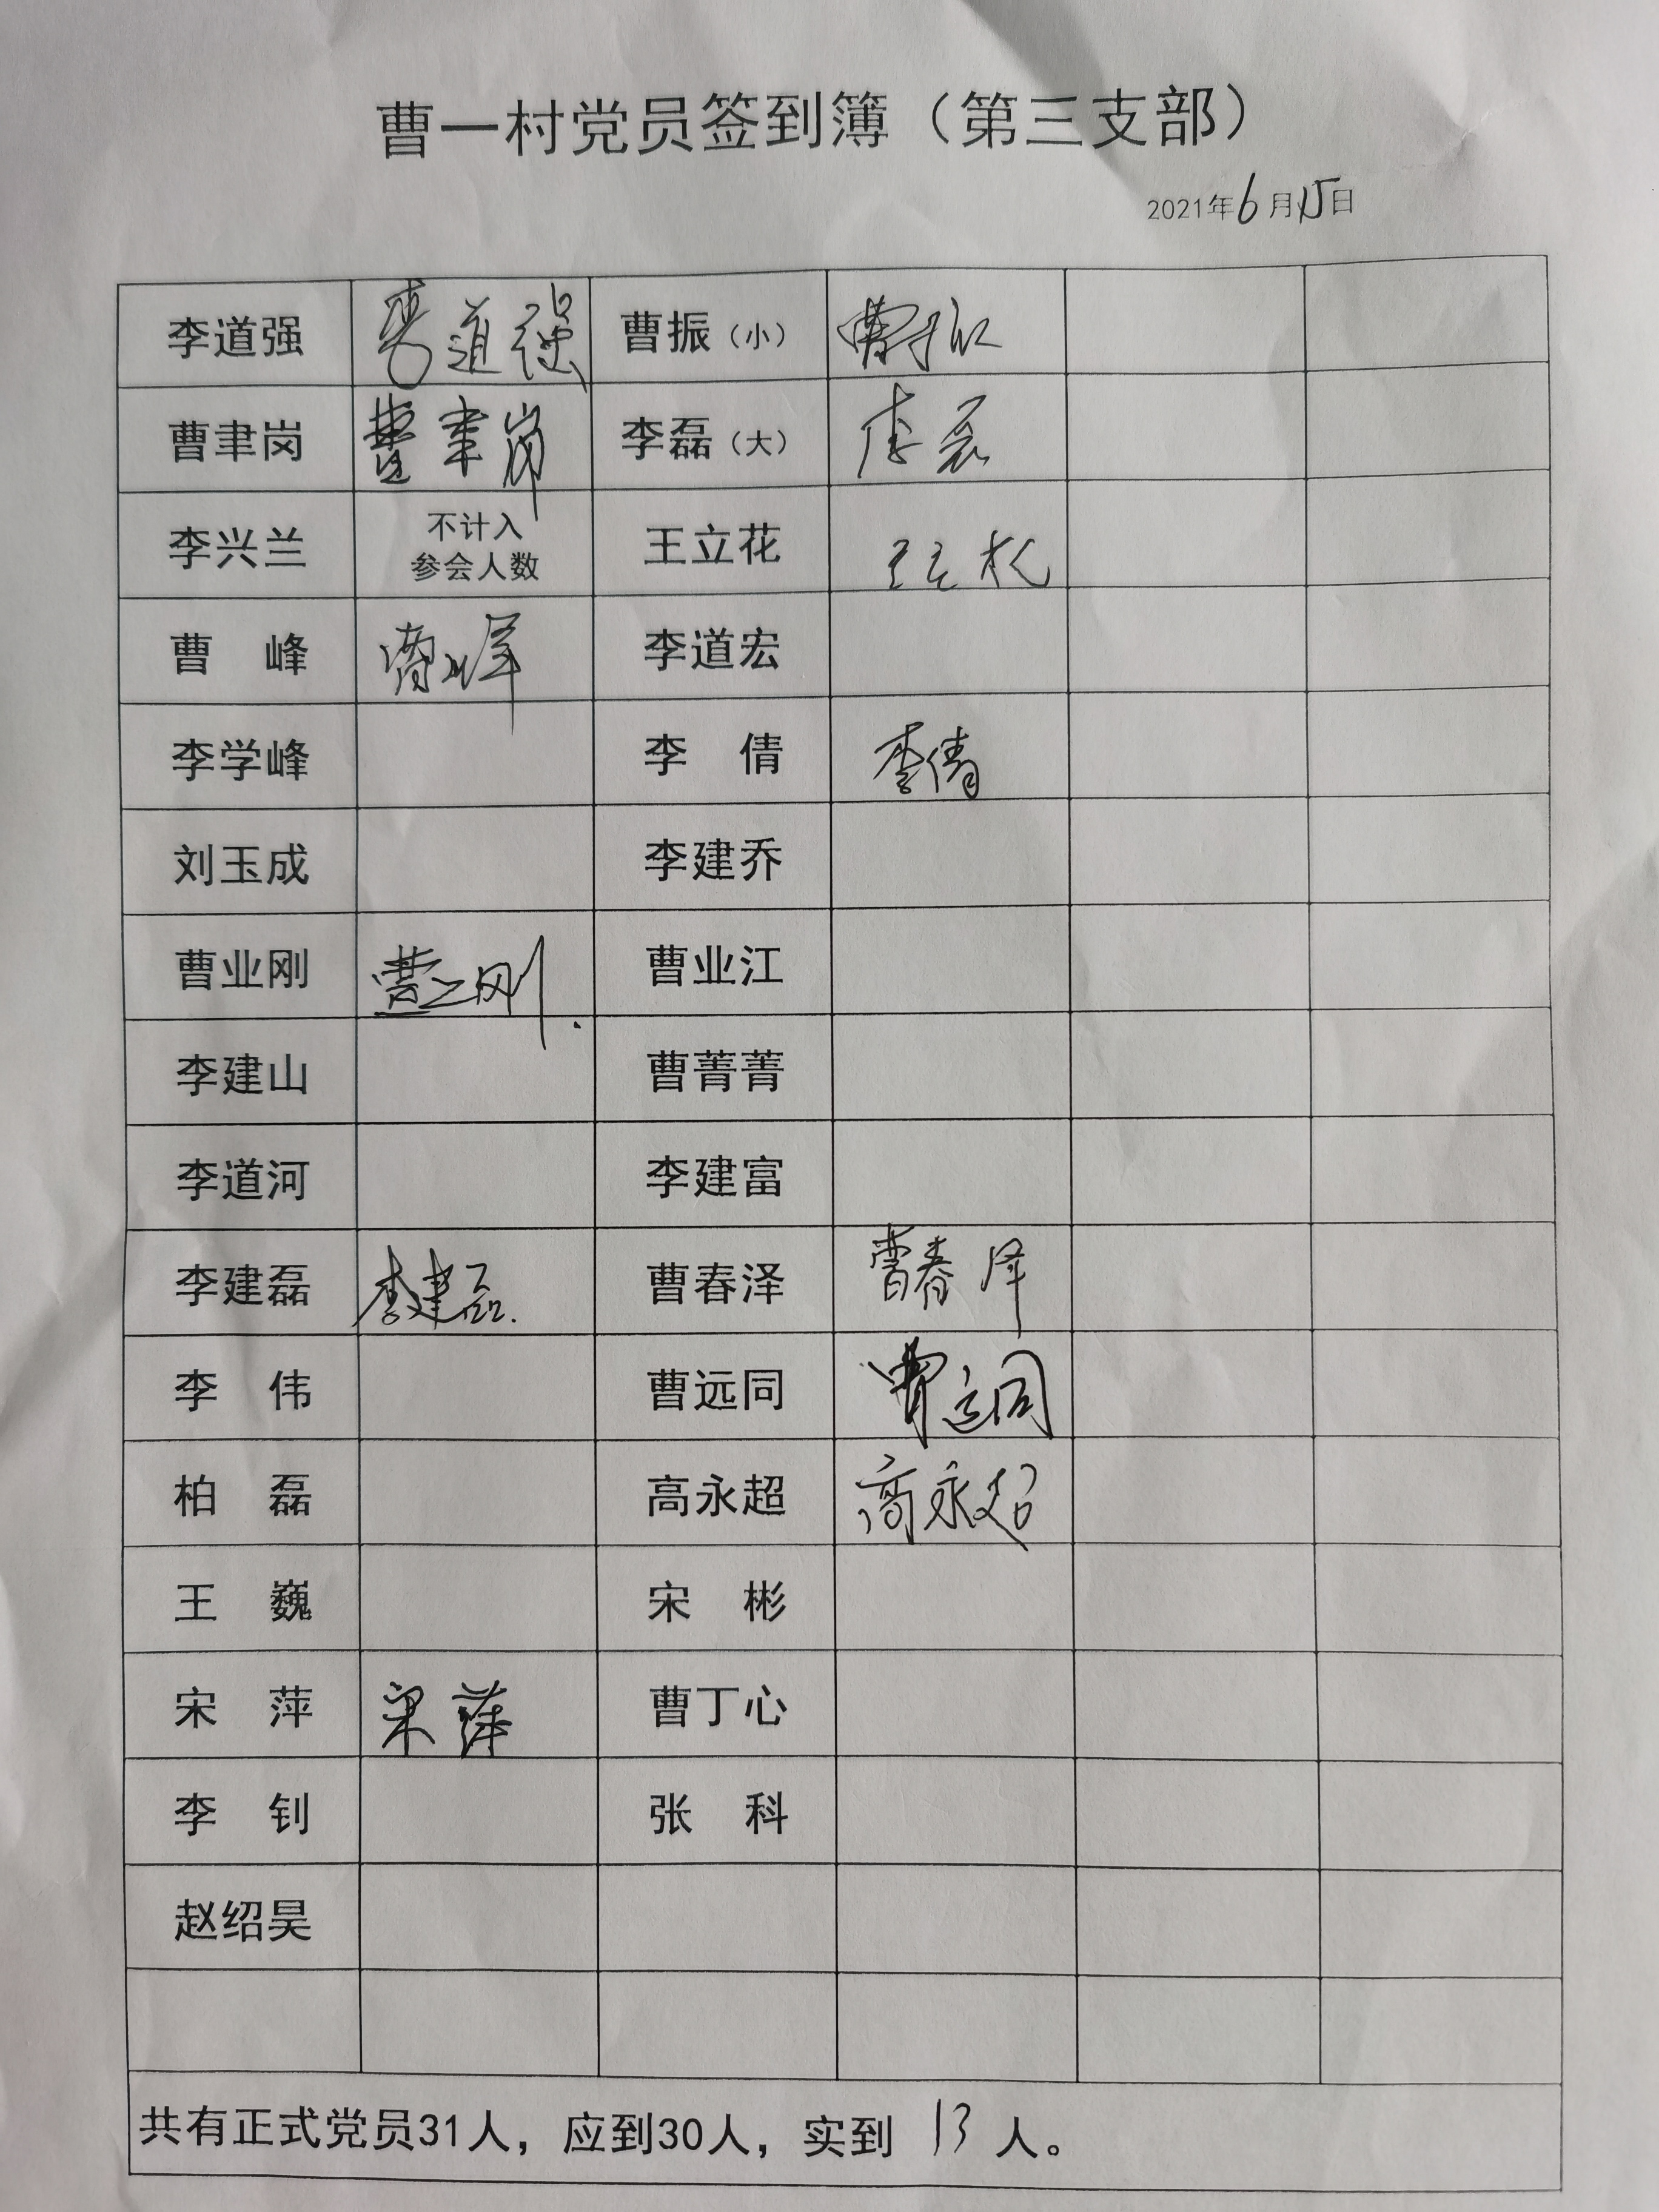 曹一村党员签到簿（第三支部）
2021年6月15日
李道强 李道强 曹振（小） 曹振
曹聿岗 曹聿岗 李磊（大） 李磊
李兴兰 不计入
参会人数 王立花 王立花
曹 峰 曹峰 李道宏
李学峰 李 倩 李倩
刘玉成 李建乔
曹业刚 曹业刚 曹业江
李建山 曹菁菁
李道河 李建富
李建磊 李建磊 曹春泽 曹春泽
李 伟 曹远同 曹远同
柏 磊 高永超 高永超
王 巍 宋 彬
宋 萍 宋萍 曹丁心
李 钊 张 科
赵绍昊
共有正式党员31人，应到30人，实到 13 人。